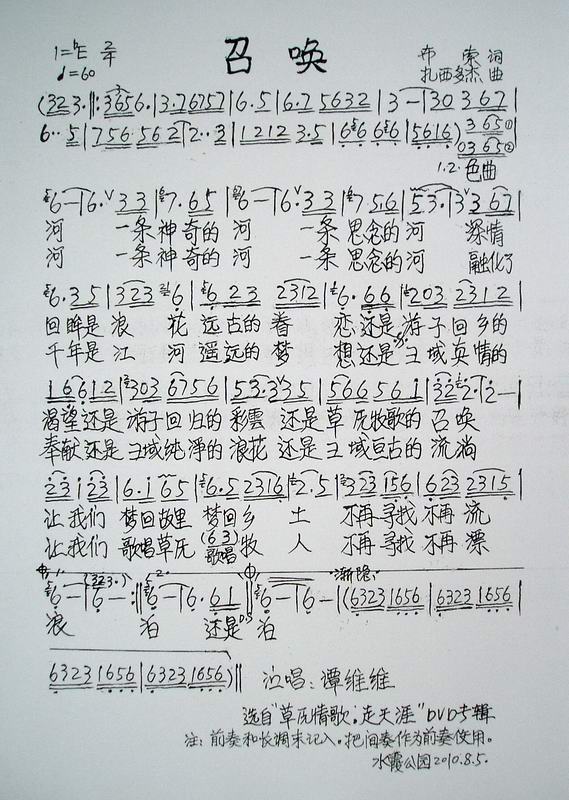 召唤
1=♭E 2/4
♩=60
布 索 词
扎西多杰 曲
(323.‖:3656.|3.76757|6.5|6.7 5632|3—|30 367|
6..5|756 5622..3|1212 3.5|656 656|5616)365①
0365②
1.2.色曲
6—|6.ᵛ33|7.65|6—|6.ᵛ33|7 56|53.|3ᵛ367|
河 一条神奇的 河 一条 思念的 河 深情
河 一条神奇的 河 一条 思念的 河 融化了
6.35|323 6|623 2312|6.66|203 2312|
回眸是 浪 花 远古的 眷 恋 还是 游子 回乡的
千年是 江 河 遥远的 梦 想 还是 王域真情的
16612|303 6756|53.335|5665561|3227.2—|
渴望 还是 游子 回归的 彩雲 还是 草原牧歌的 召唤
奉献 还是 王域 纯净的 浪花 还是 王域亘古的 流淌
23123|6.165|6.5 2316|2.5|323156|623 2315|
让我们 梦回故里 梦回乡 土 不再寻找 不再 流
让我们 歌唱草原 歌唱牧 人 不再寻找 不再 漂
(63)
1. (323.) 2. 渐隐
6—|6—:‖6—|6.61‖6—|6—|(6323 1656|6323 1656|
浪 泊 还是 D.S 泊
6323 1656|6323 1656)‖
演唱：谭维维
选自“草原情歌·走天涯”DVD专辑
注：前奏和长调未记入。把间奏作为前奏使用。
水霞公园2010.8.5.